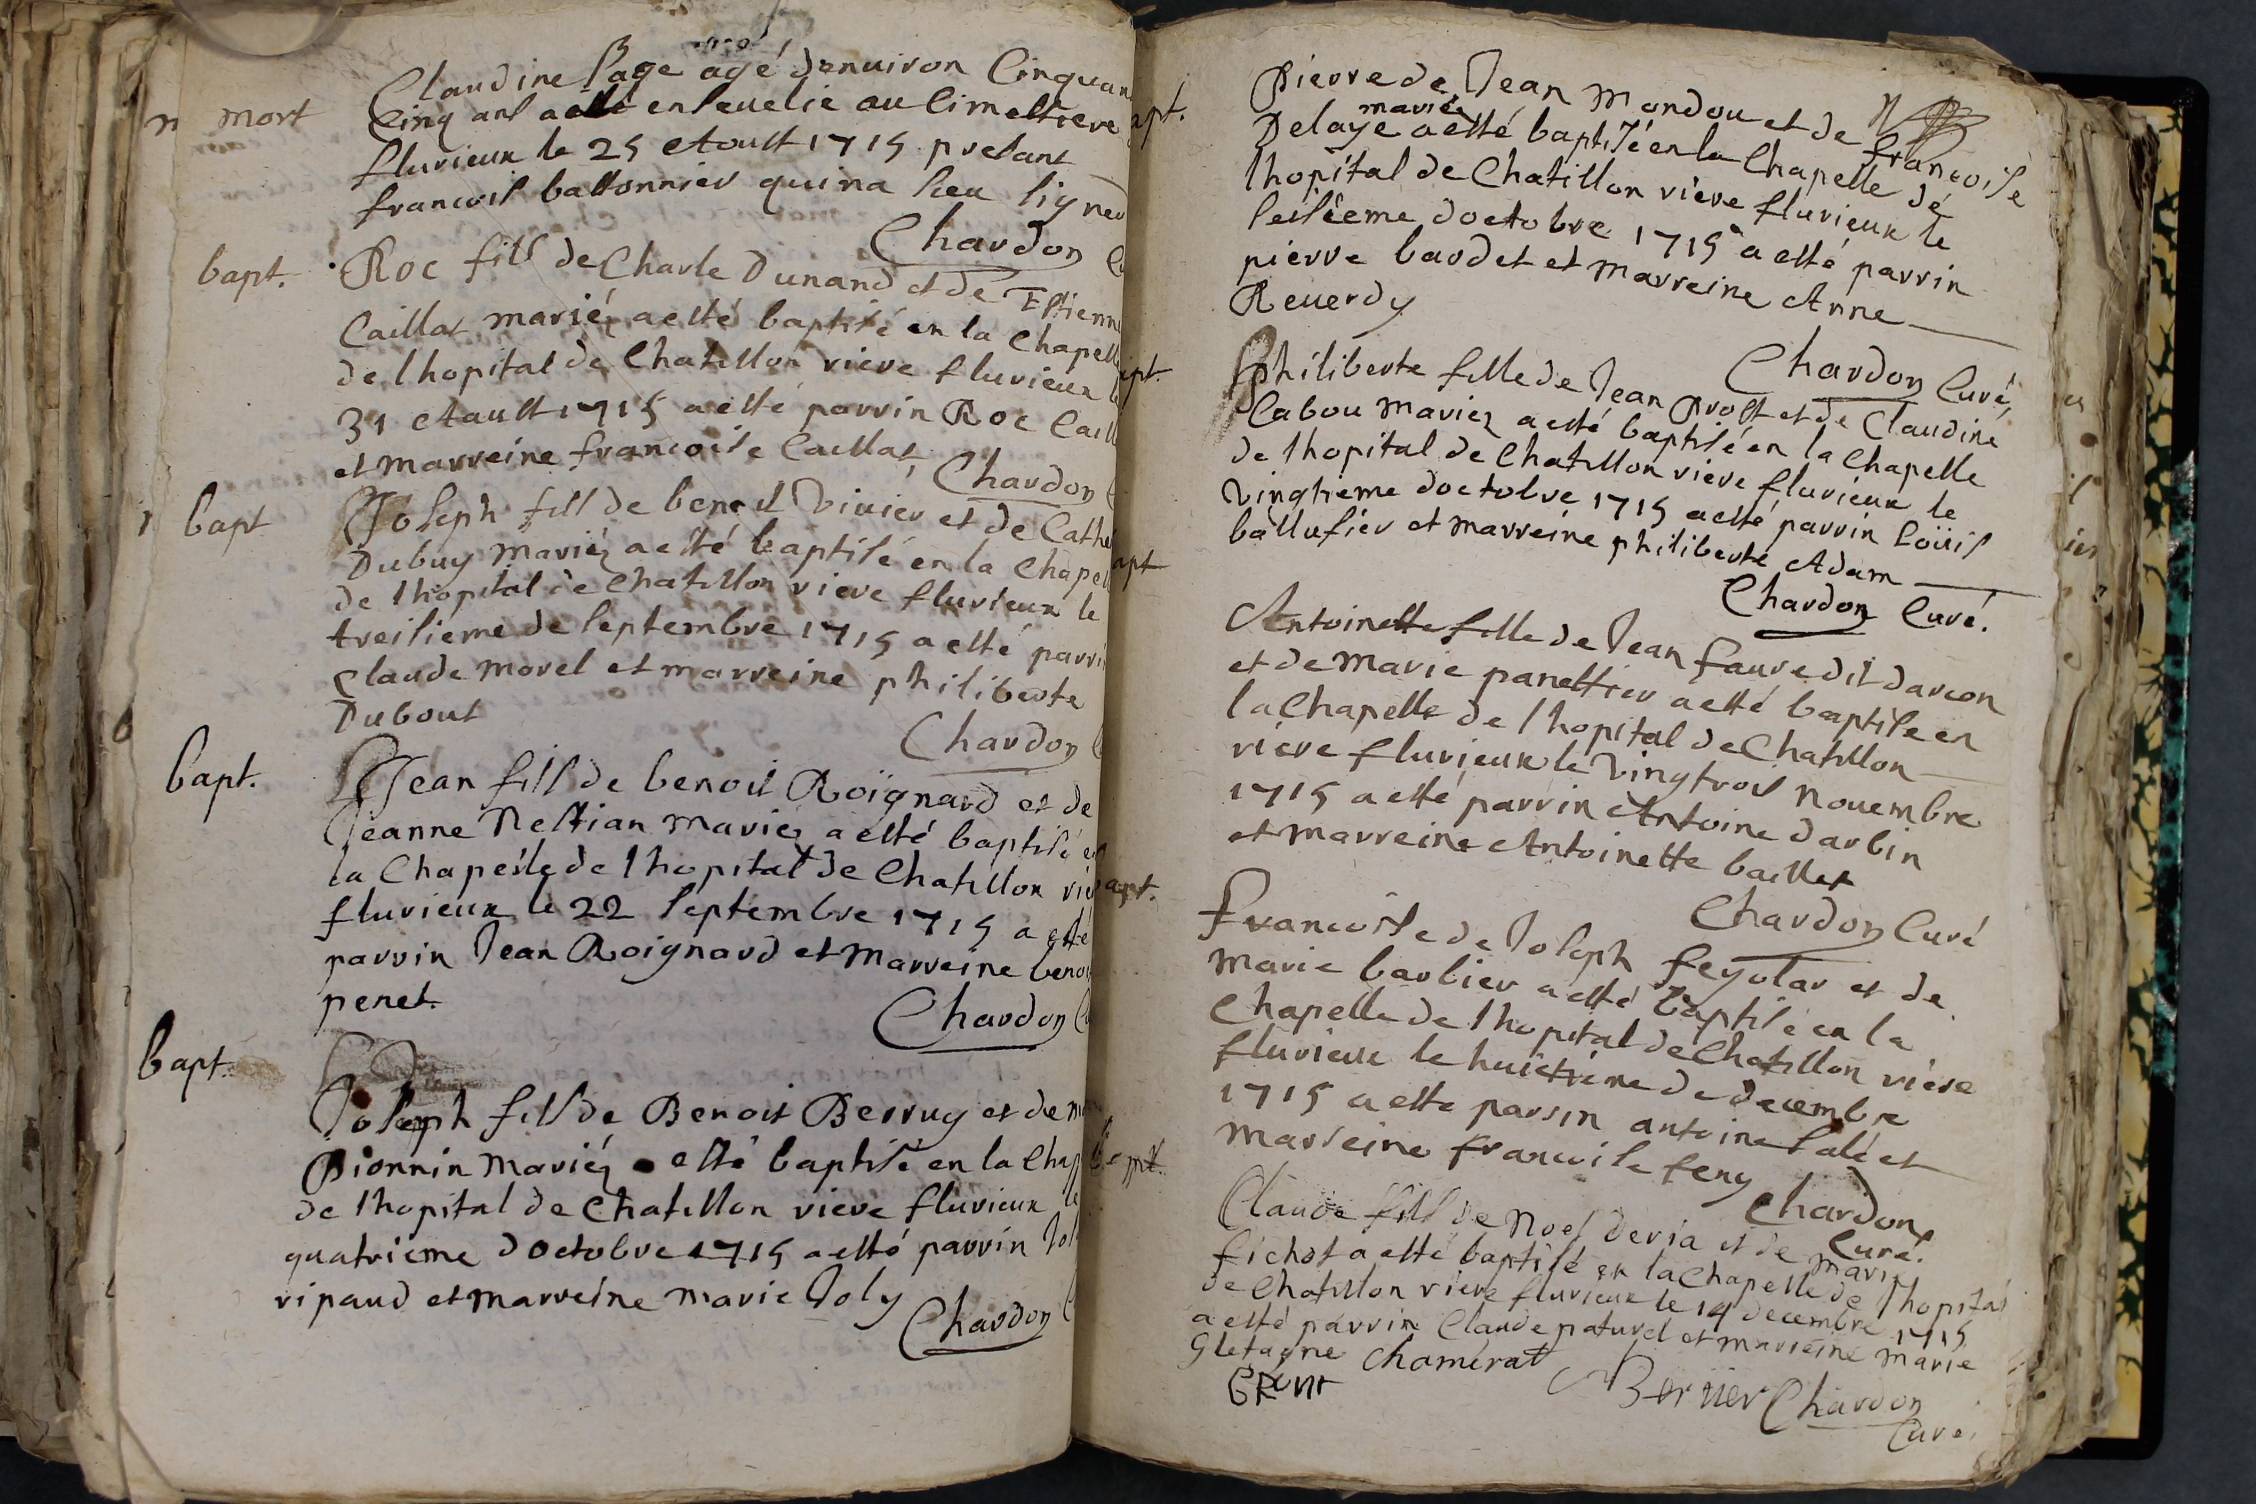 mort
Claudine Page agé denuiron Cinquan
Cinq ans a esté enseuelie au Cimettiere
fluvieux le 25 Aoust 1715 presant
francois bastonnier qui na sceu signer
Chardon
bapt.
Roc fils de Charle Dunand et de Estienn
Caillat mariéz a esté baptisé en la Chapell
de lhopital de Chatillon viere fluvieux le
31 Aoust 1715 a esté parrin Roc Caill
et marreine francoise Caillat
Chardon
bapt
Joseph fils de benoit Vivier et de Cathe
Dubuy mariéz a esté baptisé en la Chapell
de lhopital de Chatillon viere fluvieux le
treisieme de septembre 1715 a esté parri
Claude morel et marreine philiberte
Dubout
Chardon
bapt.
Jean fils de benoit Roïgnard et de
Jeanne Nestian mariez a esté baptisé en
la Chapelle de lhopital de Chatillon vie
fluvieux le 22 septembre 1715 a esté
parrin Jean Roignard et marreine benoi
penet.
Chardon
bapt.
Joseph fils de Benoit Berruy et de m
Pionnin mariéz a esté baptisé en la Chap
de lhopital de Chatillon viere fluvieux le
quatrieme doctobre 1715 a esté parrin Jos
ripaud et marreine marie Joly
Chardon
apt.
Pierre de Jean mondou et de francoise
mariéz
Delaye a esté baptisé en la Chapelle de
lhopital de Chatillon viere fluvieux le
seisieme doctobre 1715 a esté parrin
pierre bardet et marreine Anne
Reuerdy
Chardon Curé
apt.
Philiberte fille de Jean Prost et de Claudine
Cabou mariez a esté baptisé en la Chapelle
de lhopital de Chatillon viere fluvieux le
Vingtieme doctobre 1715 a esté parrin Loüis
ballufier et marreine philiberte Adam
Chardon Curé.
apt
Antoinette fille de Jean faure dit darcon
et de Marie panettier a esté baptise en
la Chapelle de lhopital de Chatillon
viere fluvieux le Vingtrois nouembre
1715 a esté parrin Antoine darbin
et marreine Antoinette baillet
Chardon Curé
apt.
Francoise de Joseph feyolar et de
marie barbier a esté baptisé en la
Chapelle de lhopital de Chatillon viere
fluvieux le huictiéme de decembre
1715 a este parrin antoine Salé et
marreine francoise feny
Chardon
Curé.
Claude fils de Noel deria et de marie
fichet a esté baptisé en la Chapelle de lhopital
de Chatillon viere fluvieux le 14 decembre 1715
a esté parrin Claude paturel et marreine marie
Gletagne Chamerat
BRUNt
Bernier Chardon
Curé.